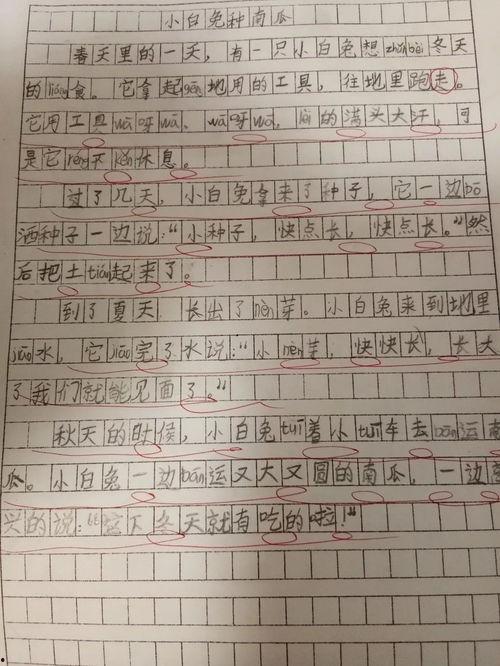 小白兔种南瓜
春天里的一天，有一只小白兔想zhǔnbèi冬天
的liáng食。它拿起gēng地用的工具，往地里跑走。
它用工具wā呀wā，wā呀wā，lèi的满头大汗，可
是它réng不kěn休息。
过了几天，小白兔拿来了种子，它一边bō
洒种子一边说："小种子，快点长，快点长。"然
后把土tián起来了。
到了夏天 长出了nèn芽。小白兔来到地里
jiāo水，它jiāo完了水说："小nèn芽，快快长，长大
了我们就能见面了。"
秋天的时候，小白兔tuī着小tuī车去bān运南
瓜。小白兔一边bān运又大又圆的南瓜，一边高
兴的说："这下冬天就有吃的啦！"